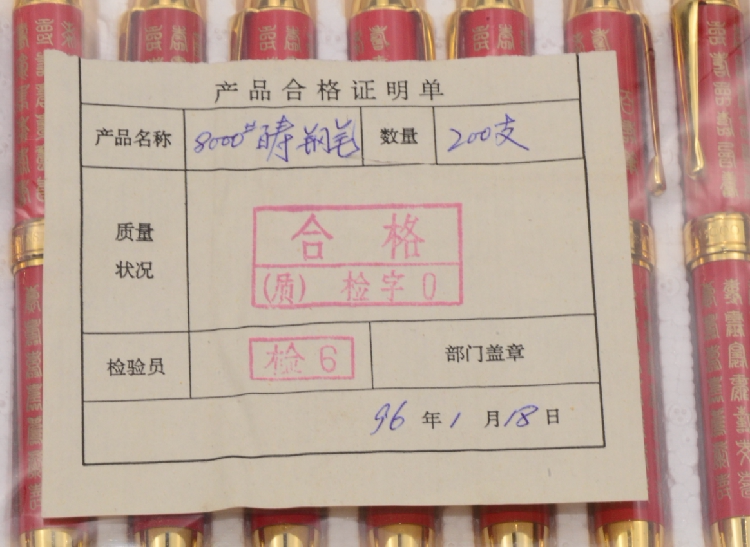 产品合格证明单
产品名称 8000# 寿钢笔 数量 200支
质量
状况
合格
(质) 检字0
检验员 检6 部门盖章
96年1月18日